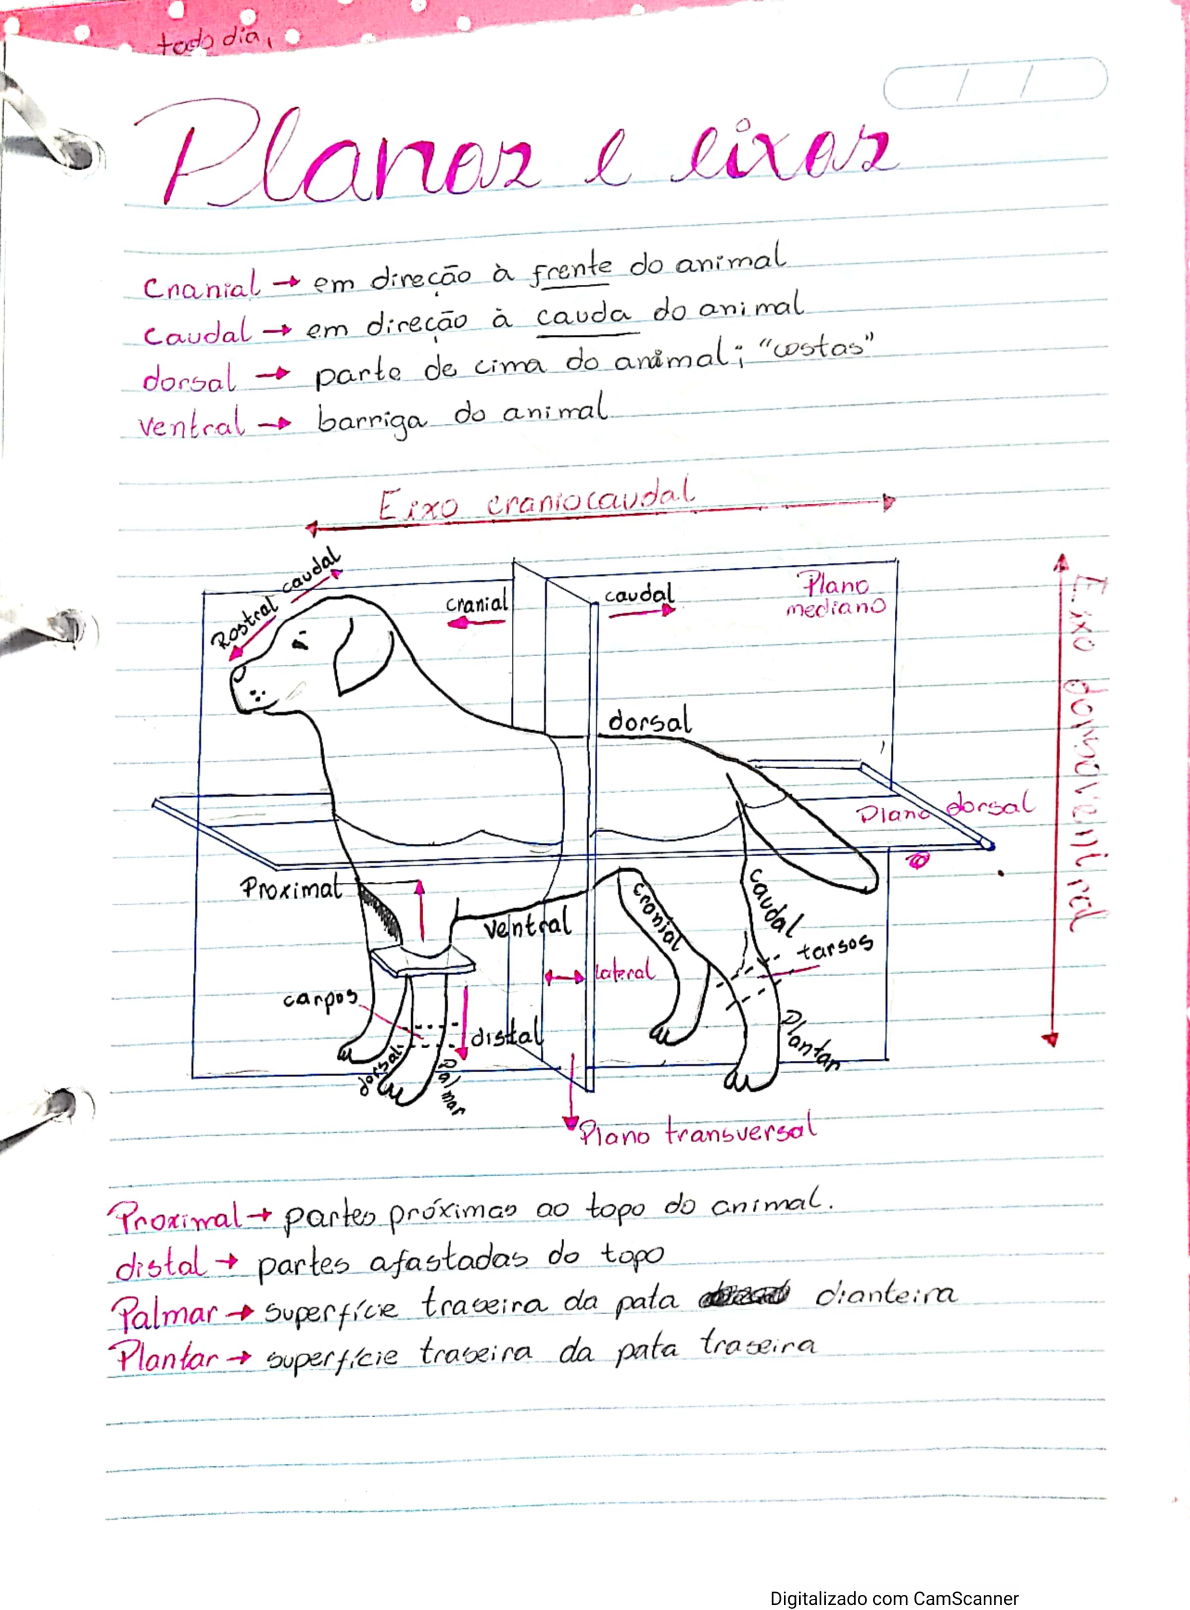 todo dia,
Planos e eixos
Cranial → em direção à frente do animal
Caudal → em direção à cauda do animal
dorsal → parte de cima do animal; "costas"
ventral → barriga do animal
Eixo craniocaudal
Rostral caudal
cranial
caudal
Plano
mediano
Eixo dorsoventral
dorsal
Plano dorsal
Proximal
ventral
cranial
caudal
tarsos
lateral
carpos
distal
dorsal
Palmar
Plantar
Plano transversal
Proximal → partes próximas ao topo do animal.
distal → partes afastadas do topo
Palmar → superfície traseira da pata dianteira
Plantar → superfície traseira da pata traseira
Digitalizado com CamScanner